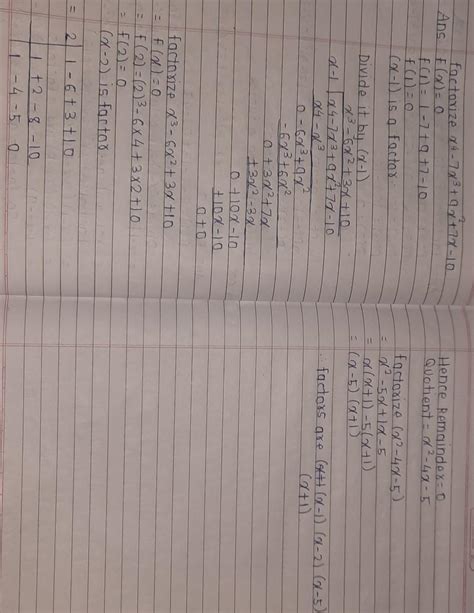 factorize x⁴-7x³+9x²+7x-10
Ans f(x)=0
f(1)=1-7+9+7-10
f(1)=0
(x-1) is a factor
Divide it by (x-1)
x³-6x²+3x+10
x-1 x⁴-7x³+9x²+7x-10
x⁴-x³
0-6x³+9x²
-6x³+6x²
0+3x²+7x
+3x²-3x
0+10x-10
+10x-10
0+0
factorize x³-6x²+3x+10
= f(x)=0
= f(2)=(2)³-6x4+3x2+10
= f(2)=0
(x-2) is factor
= 2 | 1 -6 +3 +10
1 +2 -8 -10
1 -4 -5 0
Hence Remainder=0
Quotient = x²-4x-5
factorize (x²-4x-5)
= x²-5x+1x-5
= x(x+1)-5(x+1)
= (x-5)(x+1)
∴ factors are (x-1)(x-2)(x-5)
(x+1)